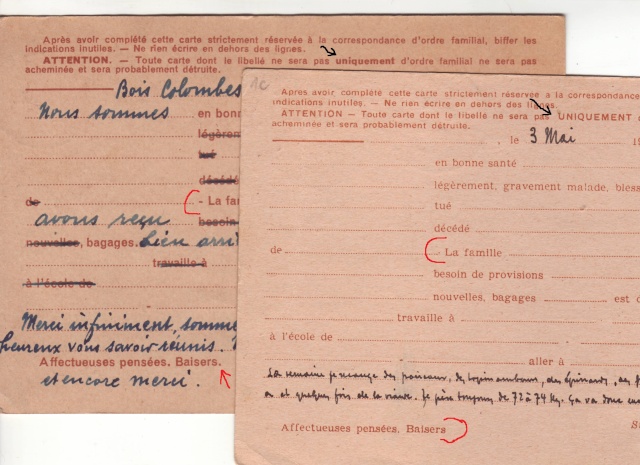 Après avoir complété cette carte strictement réservée à la correspondance d'ordre familial, biffer les
indications inutiles. — Ne rien écrire en dehors des lignes.
ATTENTION. — Toute carte dont le libellé ne sera pas uniquement d'ordre familial ne sera pas
acheminée et sera probablement détruite.
Bois Colombes
Nous sommes en bonn
légèrem
tué
décédé
de - La fam
avons reçu besoin
nouvelles, bagages. bien arri
travaille à
à l'école de
Merci infiniment, somme
heureux vous savoir réunis.
Affectueuses pensées. Baisers.
et encore merci.
1c
Après avoir complété cette carte strictement réservée à la correspondance
indications inutiles. — Ne rien écrire en dehors des lignes.
ATTENTION. — Toute carte dont le libellé ne sera pas UNIQUEMENT
acheminée et sera probablement détruite.
, le 3 Mai 19
en bonne santé
légèrement, gravement malade, bless
tué
décédé
de - La famille
besoin de provisions
nouvelles, bagages est d
travaille à
à l'école de
aller à
La semaine je mange des poireaux, des topinambours, des épinards, des
et quelques fois de la viande. Je pèse toujours de 72 à 74 Kg. Ça va donc
Affectueuses pensées, Baisers